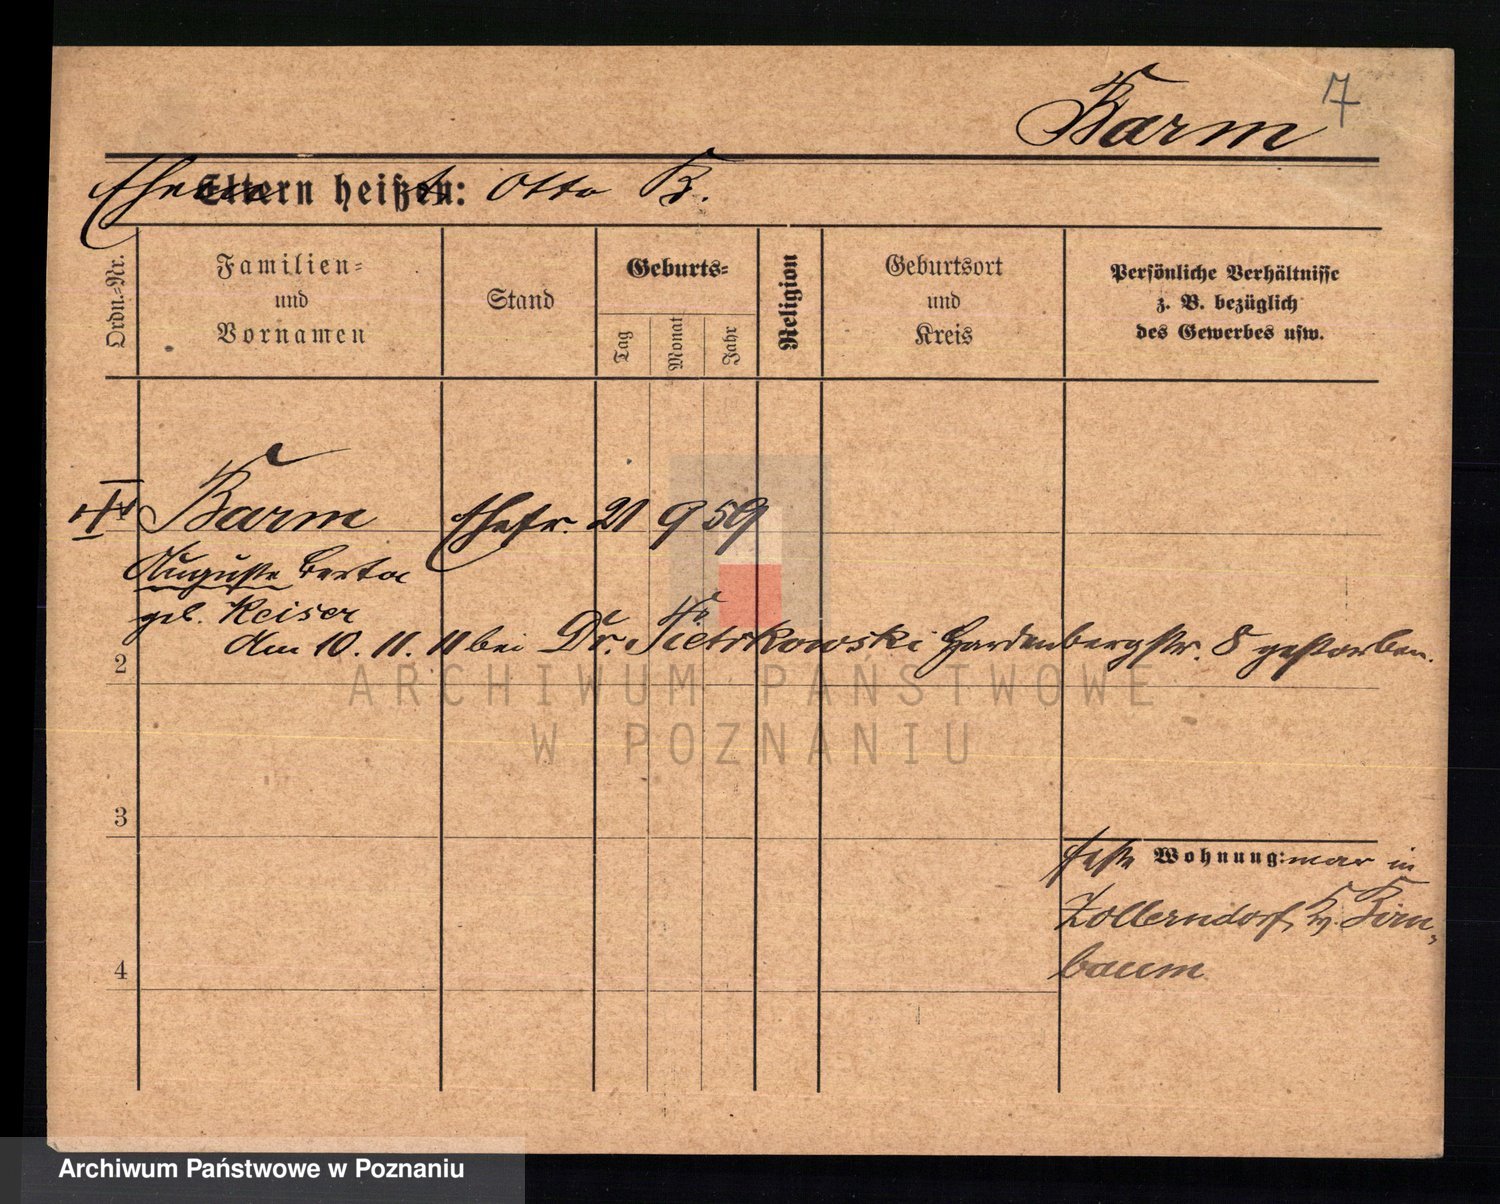 7
Barm
Ehemann Eltern heißen: Otto B.
Ordn.-Nr.
Familien-
und
Vornamen
Stand
Geburts-
Tag
Monat
Jahr
Religion
Geburtsort
und
Kreis
Persönliche Verhältnisse
z. B. bezüglich
des Gewerbes usw.
1 Barm Ehefr. 21 9 59
Auguste Berta
geb. Keiser
Am 10. 11. 11 bei Dr. Pietrkowski Hardenbergstr. 8 gestorben.
2
3
feste Wohnung: war in
Zollerndorf, Kr. Birn-
baum
4
ARCHIWUM PAŃSTWOWE
W POZNANIU
Archiwum Państwowe w Poznaniu